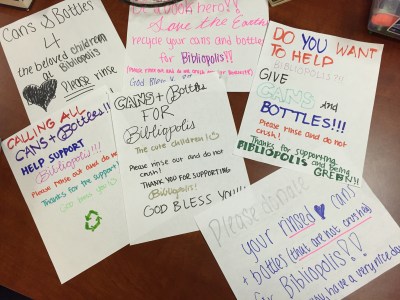 Cans & Bottles
4
the beloved children
at Bibliopolis
Please rinse
be a book hero!!
Love the Earth
recycle your cans and bottles
for Bibliopolis!!!
DO YOU WANT
TO HELP
BIBLIOPOLIS?!!!
GIVE
CANS and
BOTTLES!!!
Please rinse and do not
crush!
Thanks for supporting
BIBLIOPOLIS and being
GREEN!!!
CALLING ALL
CANS + BOTTLES!!
HELP SUPPORT
Bibliopolis!!!
Please rinse out and do no
crush!
Thanks for the support!
CANS + Bottles
FOR
Bibliopolis
The cute children!
Please rinse out and do not
crush!
THANK YOU FOR SUPPORTING
Bibliopolis!
GOD BLESS YOU!!!
Please donate
your rinsed cans
+ bottles (that are not crushed)
for Bibliopolis!!
have a very nice